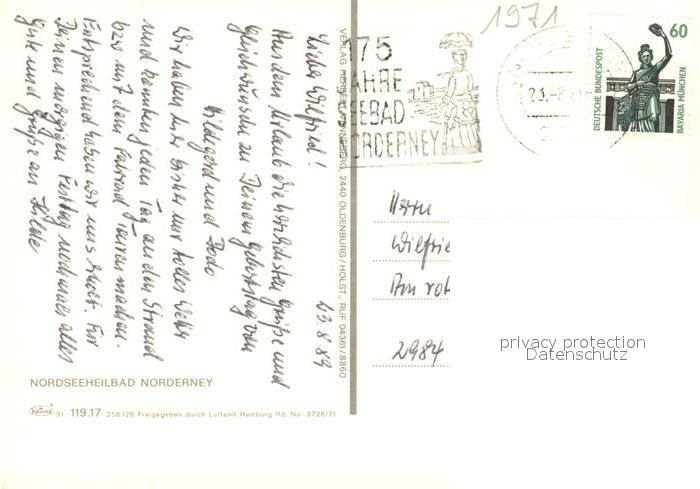 1971
175
JAHRE
SEEBAD
NORDERNEY
23.-8
60
DEUTSCHE BUNDESPOST
BAVARIA MÜNCHEN
23.8.89
Lieber Wilfried!
Aus dem Urlaub die herzlichsten Grüße und
Glückwünsche zu Deinem Geburtstag von
Hildegard und Bodo
Wir haben hier bisher nur tolles Wetter
und konnten jeden Tag an den Strand
bzw. mit dem Fahrrad Touren machen.
Entsprechend haben wir uns erholt. Für
Deinen morgigen Festtag nochmals alles
Gute und Grüße an Hilde
VERLAG HERBERT 2440 OLDENBURG/HOLST., RUF 04361/8860
Herrn
Wilfrie
Am rot
2984
privacy protection
Datenschutz
NORDSEEHEILBAD NORDERNEY
Krüger 31. 119.17 258126 Freigegeben durch Luftamt Hamburg lfd. No. 3726/71